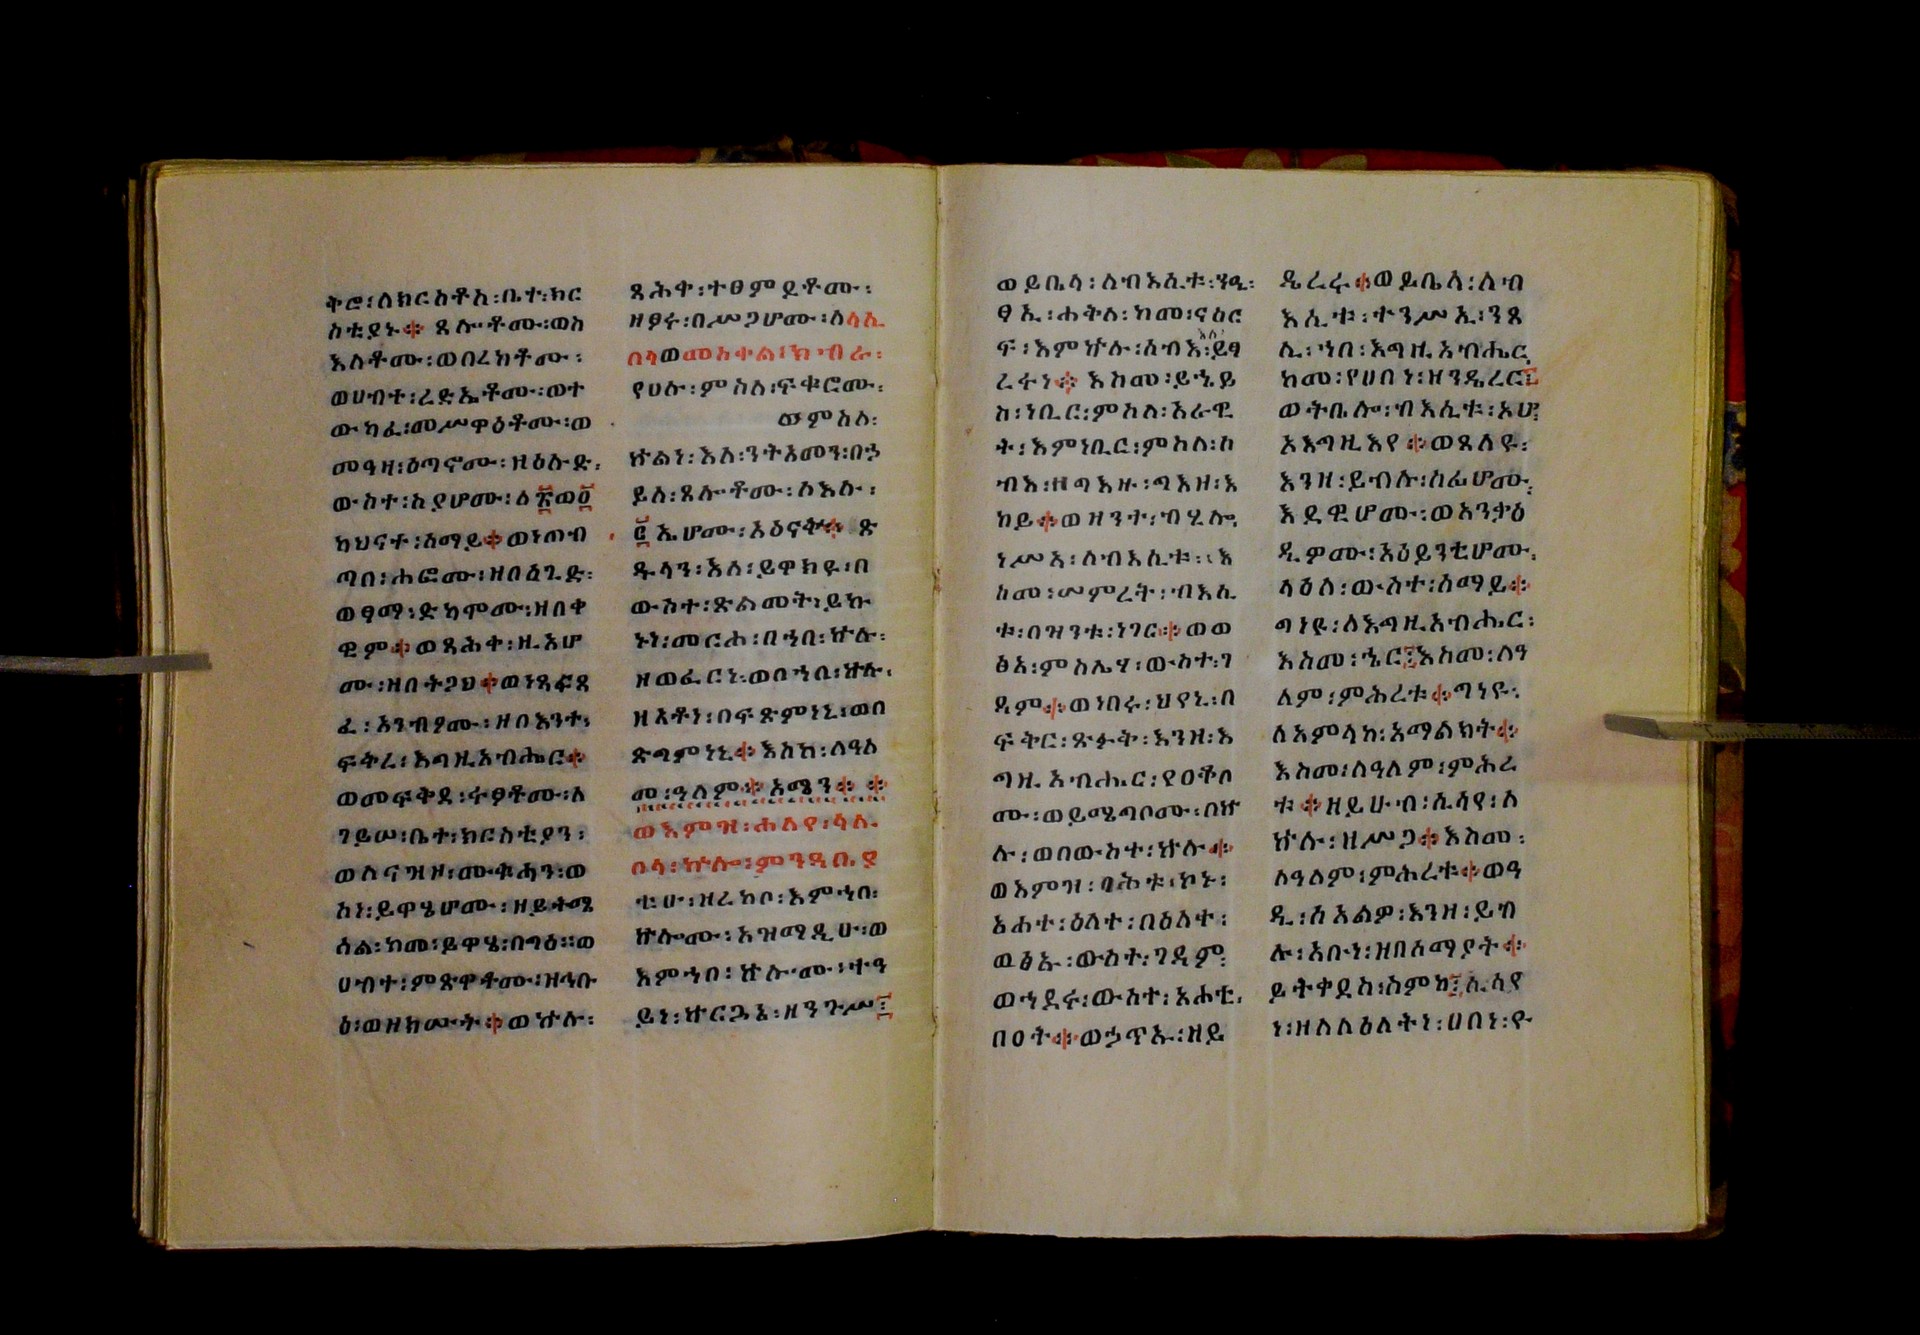 ቅሮ፡ለክርስቶስ፡ቤተ፡ክር
ስቲያኑ፨ ጸሎቶሙ፡ወስ
እለቶሙ፡ወበረከቶሙ፡
ወሀብተ፡ረድኤቶሙ፡ወተ
ውካፈ፡መሥዋዕቶሙ፡ወ
መዓዛ፡ዕጣኖሙ፡ዘዕሉድ፡
ውስተ፡እዲሆሙ፡ለ፳ወ፬
ካህናተ፡ሰማይ፨ወነጠብ
ጣበ፡ሐፎሙ፡ዘበዕጊድ፡
ወፃማ፡ድካሞሙ፡ዘበቀ
ዊም፨ወጸሕቀ፡ዚአሆ
ሙ፡ዘበትጋህ፨ወነጸፍጸ
ፈ፡አንብዖሙ፡ዘበእንተ፡
ፍቅረ፡እግዚአብሔር፨
ወመፍቅደ፡ተፅዖቶሙ፡ለ
ገይሠ፡ቤተ፡ክርስቲያን፡
ወስናዝዞ፡ሙቁሓን፡ወ
እነ፡ይዋሄሆሙ፡ዘይትሜ
ሰል፡ከመ፡ይዋሄ፡በግዕ፡፡ወ
ሀብተ፡ምጽዋቶሙ፡ዘኅቡ
ዕ፡ወዘክሡት፨ወኵሉ፡
ጻሕቀ፡ተፀምዶቶሙ፡
ዘፆሩ፡በሥጋሆሙ፡ለሳሲ
በላወመስቀል፡ክብራ፡
የሀሉ፡ምስለ፡ፍቁሮሙ፡
ወምስለ፡
ኵልነ፡እለ፡ንትአመን፡በኃ
ይለ፡ጸሎቶሙ፡ለእሉ፡
፫ኤሆሙ፡አዕናቍ፨ ጽ
ዱላን፡እለ፡ይዋክዩ፡በ
ውስተ፡ጽልመት፡ይኩ
ኑነ፡መርሐ፡በኀበ፡ኵሉ፡
ዘወፈርነ፡ወበኀበ፡ኵሉ፡
ዘአቶነ፡በፍጽምነኒ፡ወበ
ጽጋምነኒ፨እስከ፡ለዓለ
መ፡ዓለም፨አሜን፨ ፨
ወእምዝ፡ሐለየ፡ሳሲ
በላ፡ኵሎ፡ምንዳቤያ
ቲሁ፡ዝረከቦ፡እምኀበ፡
ኵሎሙ፡አዝማዲሁ፡ወ
እምኀበ፡ኵሉሙ፡ተዓ
ይነ፡ኵርጓኔ፡ዘንጉሥ፤
ወይቤላ፡ለብእሲቱ፡ንዒ፡
ፅኢ፡ሐቅለ፡ከመ፡ናዕር
እለ፡
ፍ፡እምኵሉ፡ሰብእ፡ይፃ
ረሩነ፨ እስመ፡ይኄይ
ስ፡ነቢር፡ምስለ፡አራዊ
ት፡እምነቢር፡ምስለ፡ሰ
ብእ፡ዘጓእዙ፡ጓእዘ፡እ
ከይ፨ወዘንተ፡ብሂሎ፡
ነሥአ፡ለብእሲቱ፡እ
ከመ፡ሠምረት፡ብእሲ
ቱ፡በዝንቱ፡ነገር፨ወወ
ፅአ፡ምስሌሃ፡ውስተ፡ገ
ዳም፨ወነበሩ፡ህየኒ፡በ
ፍቅር፡ጽፉቅ፡እንዘ፡እ
ግዚአብሔር፡የዐቅበ
ሙ፡ወይሜግቦሙ፡በኵ
ሉ፡ወበውስተ፡ኵሉ፨
ወእምዝ፡ባሕቱ፡ኮኑ፡
አሐተ፡ዕለተ፡በዕለት፡
ወፅኡ፡ውስተ፡ገዳም፡
ወኀደሩ፡ውስተ፡አሐቲ፡
በዐት፨ወኃጥኡ፡ዘይ
ዴረሩ፨ወይቤላ፡ለብ
እሲቱ፡ተንሥኢ፡ንጸ
ሊ፡ኀበ፡እግዚአብሔር
ከመ፡የሀበነ፡ዘንዴረር፤
ወትቤሎ፡ብእሲቱ፡አሆ፡
አእግዚእየ፨ወጸለዩ፡
እንዘ፡ይብሉ፡ሰፊሆሙ፡
እደዊሆሙ፡ወአንቃዕ
ዲዎሙ፡አዕይንቲሆሙ፡
ላዕለ፡ውስተ፡ሰማይ፨
ግነዩ፡ለእግዚአብሔር፡
እስመ፡ኄር፤እስመ፡ለዓ
ለም፡ምሕረቱ፨ግነዩ፡
ለአምላከ፡አማልክት፨
እስመ፡ለዓለም፡ምሕረ
ቱ፨ዘይሁብ፡ሲሳየ፡ለ
ኵሉ፡ዘሥጋ፨እስመ፡
ለዓለም፡ምሕረቱ፨ወዓ
ዲ፡ሰአልዎ፡እንዘ፡ይብ
ሉ፡አቡነ፡ዘበሰማያት፨
ይትቀደስ፡ስምከ፤ሲሳየ
ነ፡ዘለለዕለትነ፡ሀበነ፡ዮ